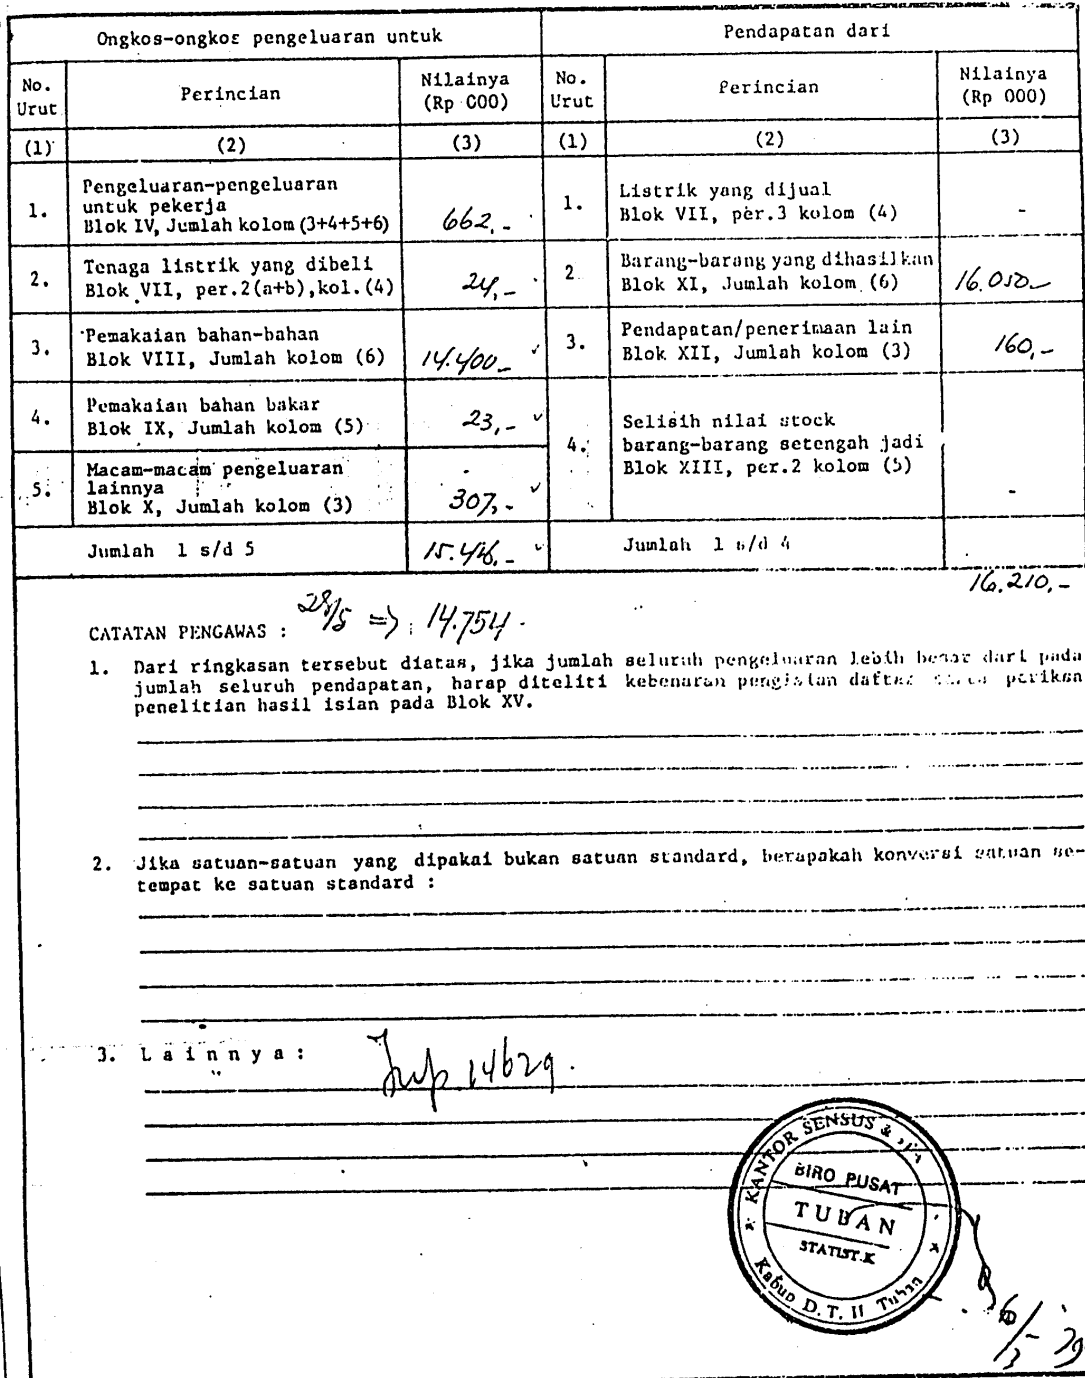 Ongkos-ongkos pengeluaran untuk
Pendapatan dari
No. Urut
Perincian
Nilainya (Rp 000)
No. Urut
Perincian
Nilainya (Rp 000)
(1) (2) (3) (1) (2) (3)
1.
Pengeluaran-pengeluaran
untuk pekerja
Blok IV, Jumlah kolom (3+4+5+6)
662,-
1.
Listrik yang dijual
Blok VII, per.3 kolom (4)
-
2.
Tenaga listrik yang dibeli
Blok VII, per.2(a+b),kol.(4)
24,-
2
Barang-barang yang dihasilkan
Blok XI, Jumlah kolom (6)
16.050-
3.
Pemakaian bahan-bahan
Blok VIII, Jumlah kolom (6)
14.400-
3.
Pendapatan/penerimaan lain
Blok XII, Jumlah kolom (3)
160,-
4.
Pemakaian bahan bakar
Blok IX, Jumlah kolom (5)
23,-
4.
Selisih nilai stock
barang-barang setengah jadi
Blok XIII, per.2 kolom (5)
-
5.
Macam-macam pengeluaran
lainnya
Blok X, Jumlah kolom (3)
307,-
Jumlah 1 s/d 5
Jumlah 1 s/d 4
16.210,-
CATATAN PENGAWAS : 28/5 => 14.754
1. Dari ringkasan tersebut diatas, jika jumlah seluruh pengeluaran lebih besar dari pada
jumlah seluruh pendapatan, harap diteliti kebenaran pengisian daftar periksa
penelitian hasil isian pada Blok XV.
2. Jika satuan-satuan yang dipakai bukan satuan standard, berapakah konversi satuan se-
tempat ke satuan standard :
3. Lainnya:
14629.
KANTOR SENSUS &
BIRO PUSAT
TUBAN
STATIST.K
Kabup D.T. II Tuban